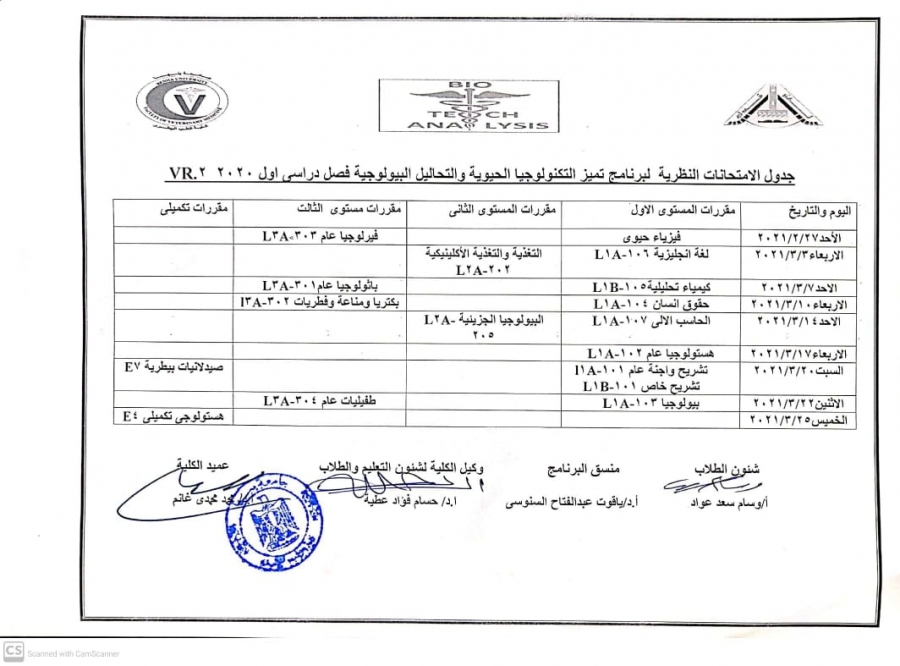 BIO
TECH
ANALYSIS
جدول الامتحانات النظرية لبرنامج تميز التكنولوجيا الحيوية والتحاليل البيولوجية فصل دراسى اول ٢٠٢٠ VR.٢
اليوم والتاريخ مقررات المستوى الاول مقررات المستوى الثانى مقررات مستوى الثالت مقررات تكميلى
الأحد٢٠٢١/٢/٢٧ فيزياء حيوى فيرلوجيا عام L٣A-٣٠٣
الاربعاء٢٠٢١/٣/٣ لغة انجليزية L١A-١٠٦ التغذية والتغذية الأكلينيكية
L٢A-٢٠٢
الاحد٢٠٢١/٣/٧ كيمياء تحليلية L١B-١٠٥ باثولوجيا عام L٣A-٣٠١
الاربعاء٢٠٢١/٣/١٠ حقوق انسان L١A-١٠٤ بكتريا ومناعة وفطريات l٣A-٣٠٢
الاحد٢٠٢١/٣/١٤ الحاسب الالى L١A-١٠٧ البيولوجيا الجزيئية L٢A-
٢٠٥
الاربعاء٢٠٢١/٣/١٧ هستولوجيا عام L١A-١٠٢
السبت٢٠٢١/٣/٢٠ تشريح واجنة عام l١A-١٠١ صيدلانيات بيطرية E٧
تشريح خاص L١B-١٠١
الاثنين٢٠٢١/٣/٢٢ بيولوجيا L١A-١٠٣ طفيليات عام L٣A-٣٠٤
الخميس٢٠٢١/٣/٢٥ هستولوجى تكميلى E٤
شئون الطلاب منسق البرنامج وكيل الكلية لشئون التعليم والطلاب عميد الكلية
أ/وسام سعد عواد أ.د/ياقوت عبدالفتاح السنوسى ا.د/ حسام فؤاد عطية مجدى غانم
CS Scanned with CamScanner